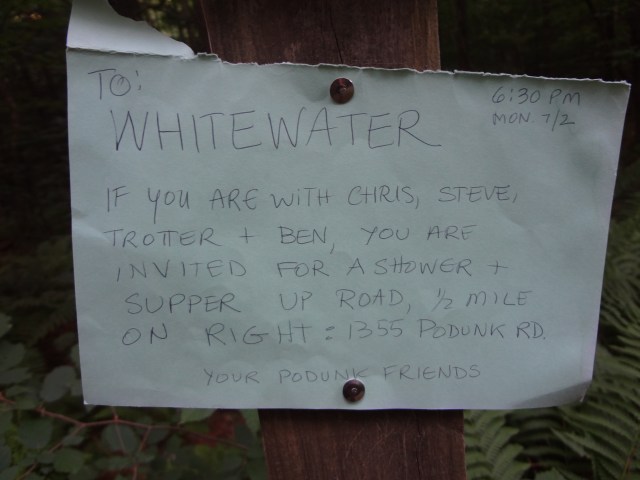 TO:
WHITEWATER
6:30 PM
MON. 7/2
IF YOU ARE WITH CHRIS, STEVE,
TROTTER + BEN, YOU ARE
INVITED FOR A SHOWER +
SUPPER UP ROAD, 1/2 MILE
ON RIGHT: 1355 PODUNK RD.
YOUR PODUNK FRIENDS